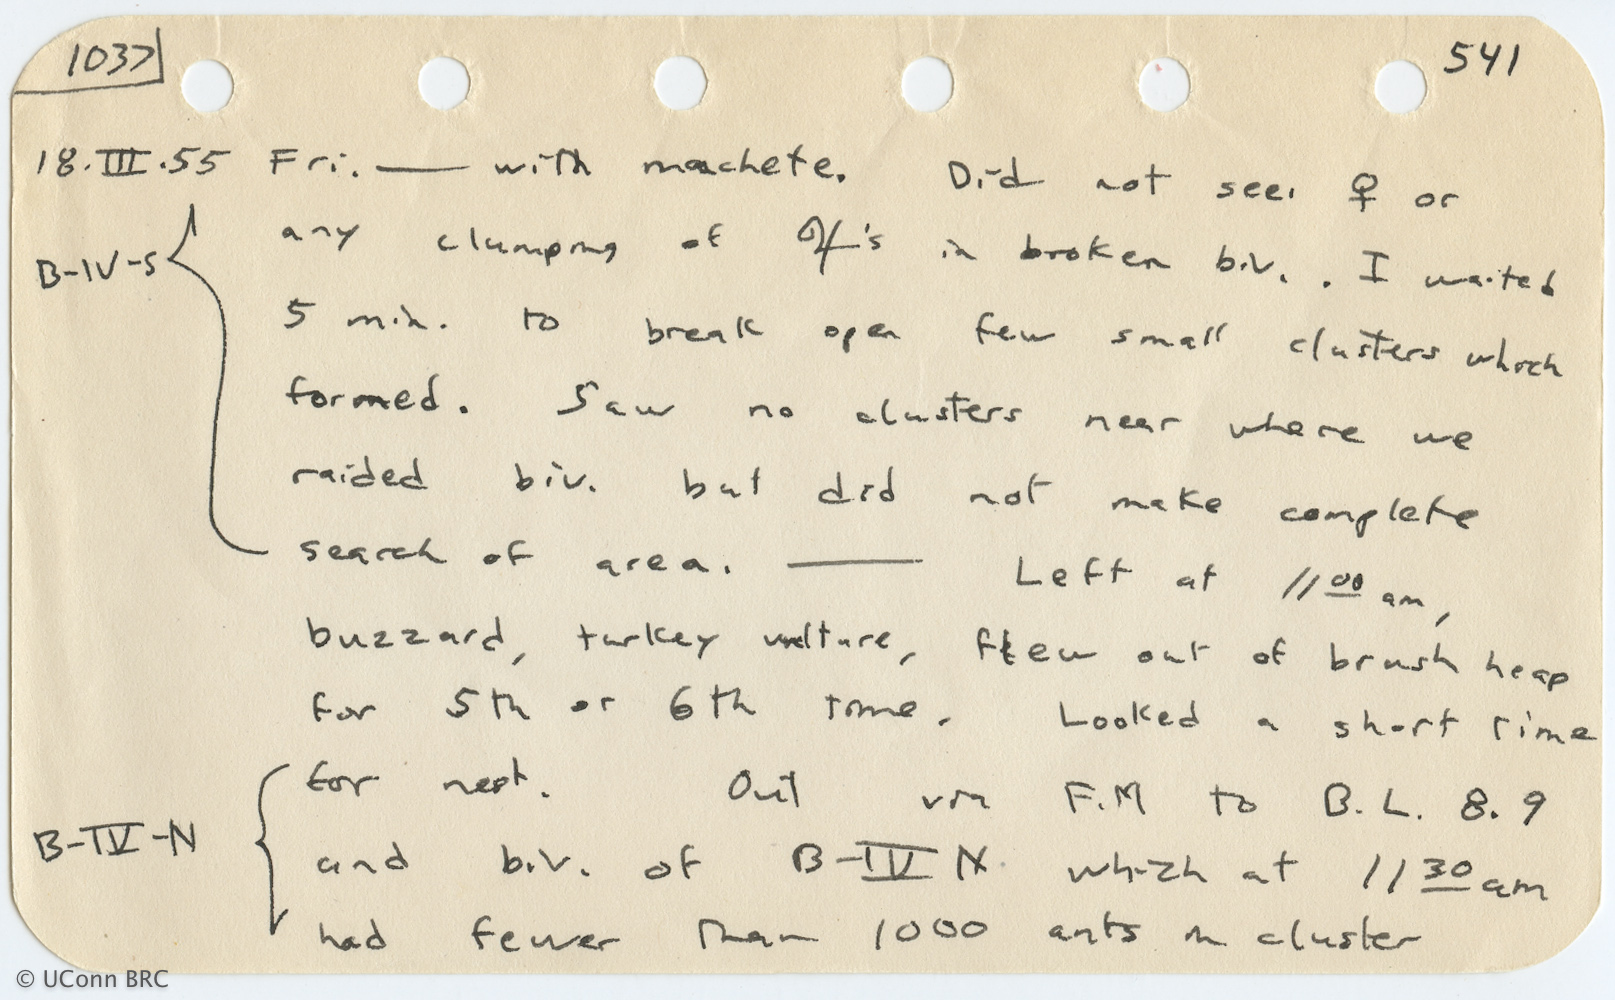 1037
541
18.III.55 Fri. — with machete. Did not see ♀ or
B-IV-S
any clumping of 's in broken biv. . I waited
5 min. to break open few small clusters which
formed. Saw no clusters near where we
raided biv. but did not make complete
search of area. — Left at 11 00 am,
buzzard, turkey vulture, flew out of brush heap
for 5th or 6th time. Looked a short time
for nest. Out via F.M to B.L. 8.9
B-IV-N
and biv. of B-IV N. which at 11 30 am
had fewer than 1000 ants in cluster
© UConn BRC